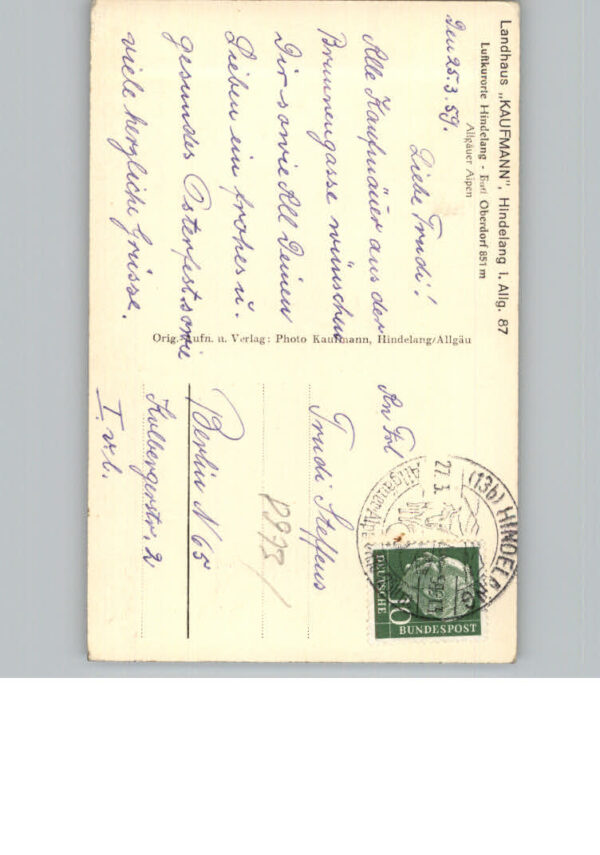 Landhaus „KAUFMANN", Hindelang i. Allg. 87
Luftkurorte Hindelang - Bad Oberdorf 851 m
Allgäuer Alpen
Den 25.3.59.
Liebe Trudi!
Alle Kaufmänner aus der
Brunnengasse wünschen
Dir sowie All Deinen
Lieben ein frohes u.
gesundes Osterfest sowie
viele herzliche Grüsse.
Orig. Aufn. u. Verlag: Photo Kaufmann, Hindelang/Allgäu
An Frl
Trudi Steffens
Berlin N 65
Kolbergerstr. 2
I v.l.
8973/
(13b) HINDELANG
27.3.
Allgäuer Alpen
10
DEUTSCHE
BUNDESPOST